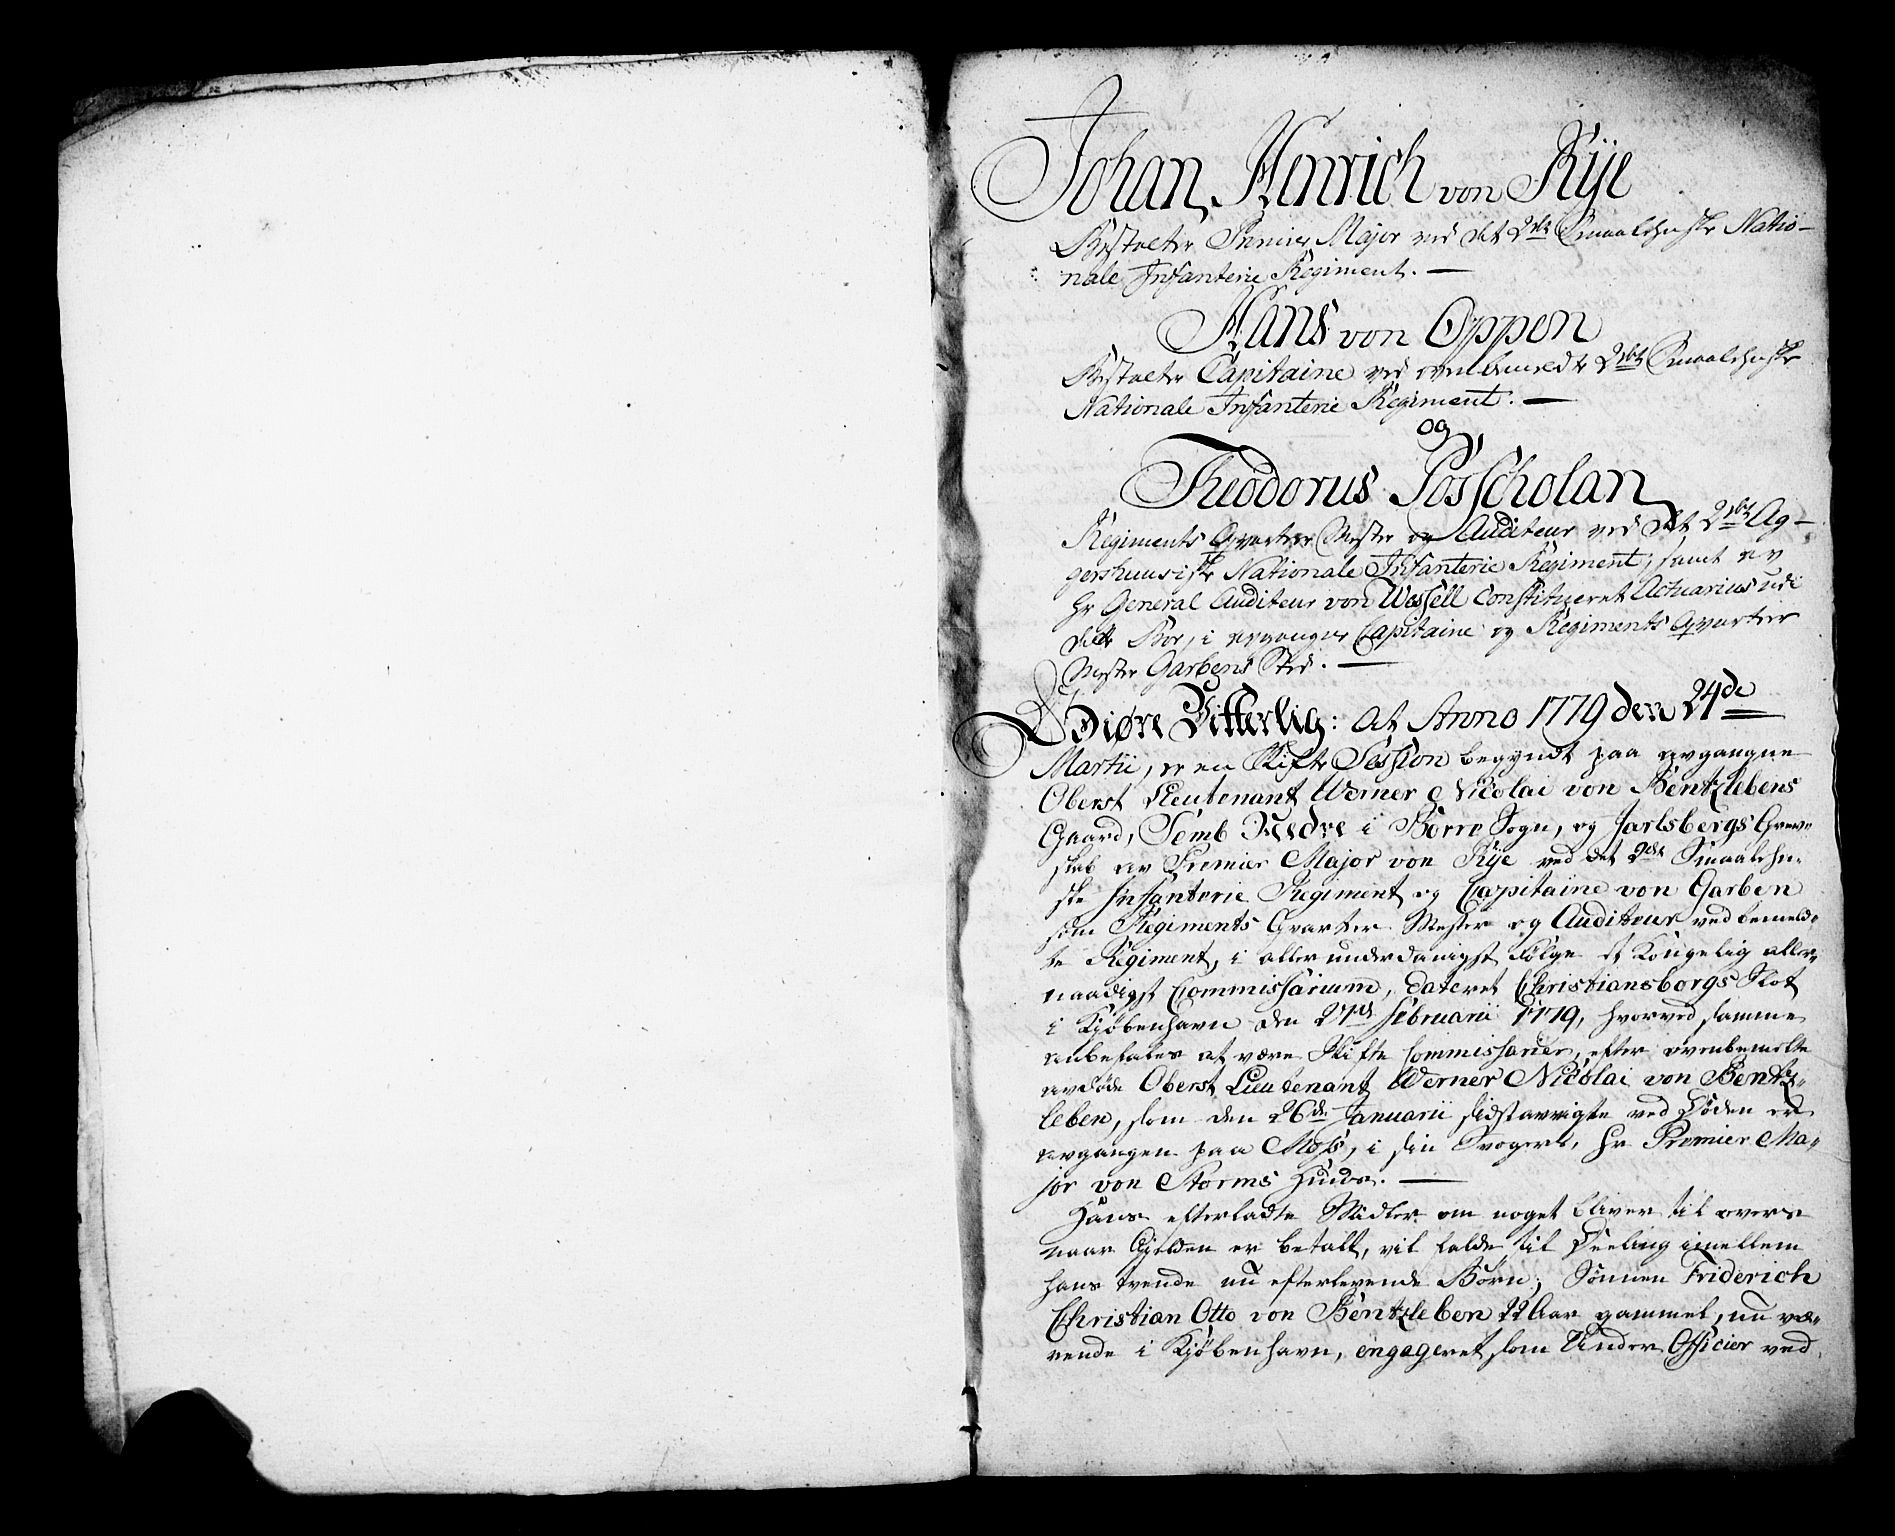 Johan Henrich von Rÿe
Bestalter Premier Major ved det 2det Smaalehnske Natio-
nale Infanterie Regiment. —
Hans von Oppen
Bestalter Capitaine ved ovenbemeldte 2det Smaalehnske
Nationale Infanterie Regiment. —
og
Theodorus Posscholan
Regiments Qvarteer Mester og Auditeur ved det 2det Ag-
gershuusiske Nationale Infanterie Regiment, samt av
Hr General Auditeur von Wessell Constitueret Actuarius udi
dette Boe, i avgangne Capitaine og Regiments Qvarteer
Mester Garbens Sted. —
Giöre Vitterlig: at Anno 1779 den 24de
Martii, er en Skifte Session begyndt paa avgangne
Oberst Lieutenant Werner Nicolai von Bentzlebens
Gaard, Semb Nedre i Borre Sogn, og Jarlsbergs Grev-
skab av Premier Major von Rÿe ved det 2det Smaalehn-
ske Infanterie Regiment og Capitaine von Garben
som Regiments Qvarteer Mester og Auditeur ved bemeld-
te Regiment, i aller underdanigst Følge et Kongelig aller-
naadigst Commissarium, dateret Christiansborgs Slot
i Kjøbenhavn den 27de Februarii 1779, hvorved samme
anbefales at være Skifte Commissarier, efter ovenbemelte
avdøde Oberst Lieutenant Werner Nicolai von Bentz-
leben, som den 26de Januarii sidstavvigte ved Døden er
avgangen paa Moss, i sin Svogers, Hr Premier Ma-
jor von Storms Huus. —
Hans efterladte Midler om noget bliver til overs
naar Gjelden er betalt, vil falde til Deeling imellem
hans tvende nu efterlevende Børn; Sønnen Friderich
Christian Otto von Bentzleben 22 Aar gammel, nu væ-
rende i Kjøbenhavn, engageret som Under Officier ved